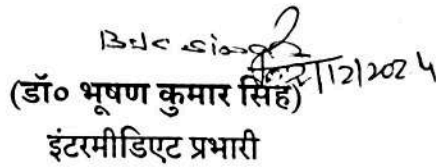 12/2024
(डॉ० भूषण कुमार सिंह)
इंटरमीडिएट प्रभारी